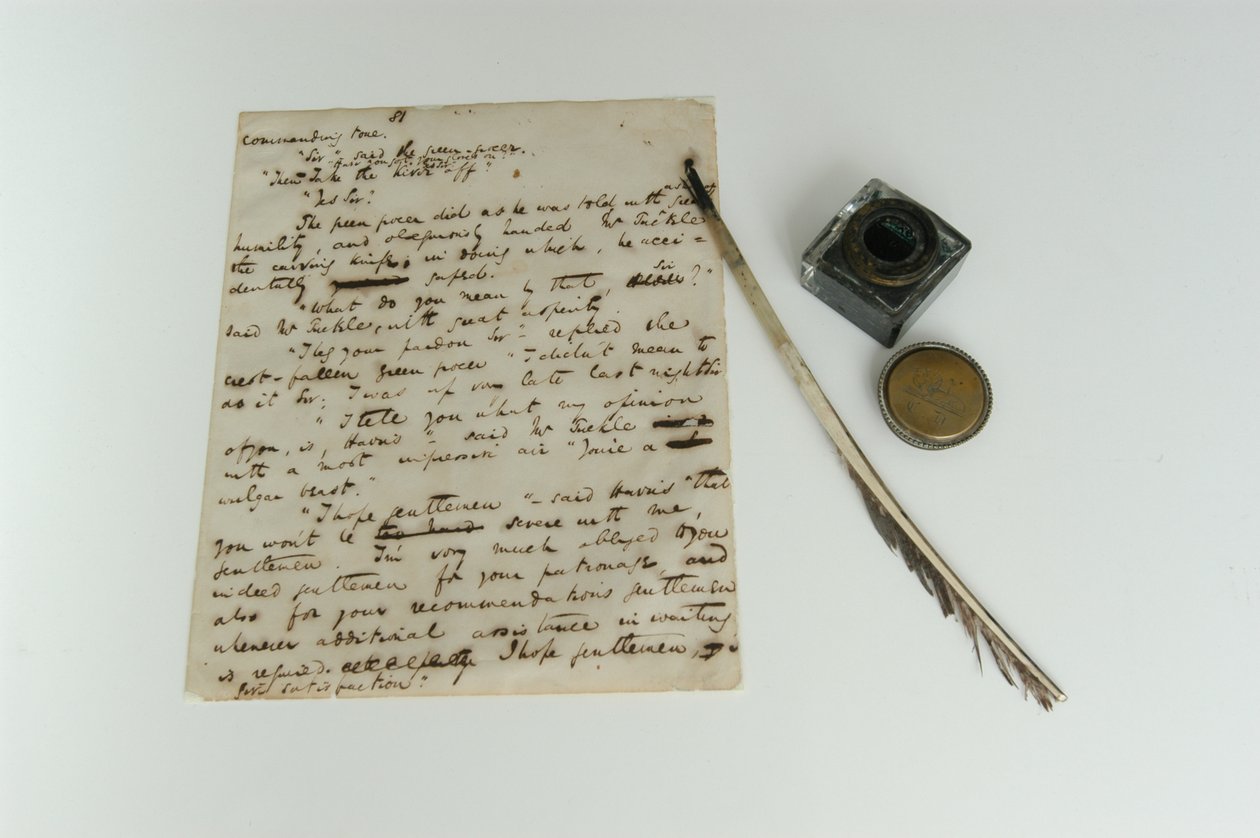 81
commanding tone.
"Sir" said the green-grocer.
"Have you got your gloves on?"
"Yes Sir"
"Then Take the kiver off"
"Yes Sir"
The green grocer did as he was told with a show of great
humility, and obsequiously handed Mr Tuckle
the carving knife; in doing which, he acci=
dentally gaped.
"What do you mean by that, Sir?"
said Mr Tuckle, with great asperity.
"I beg your pardon Sir"- replied the
crest-fallen green grocer "I didn't mean to
do it Sir; I was up very late last night Sir
"I tell you what my opinion
of you, is, Harris"- said Mr Tuckle
with a most impressive air "You're a
wulgar beast."
"I hope gentlemen"- said Harris "that
you won't be severe with me,
gentlemen. I'm very much obliged to you
indeed gentlemen for your patronage, and
also for your recommendations gentlemen
whenever additional assistance in waiting
is required. I hope gentlemen, I
give satisfaction"